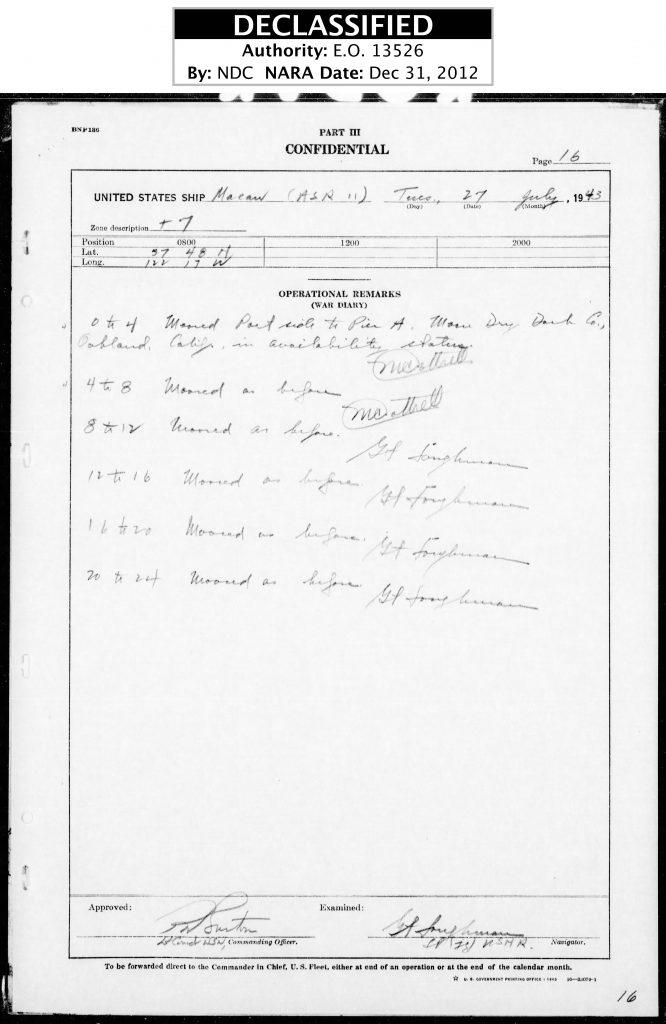 DECLASSIFIED
Authority: E.O. 13526
By: NDC NARA Date: Dec 31, 2012
PART III
CONFIDENTIAL
Page 16
UNITED STATES SHIP Macaw (ASR 11) Tues., 27 July, 1943
(Day) (Date) (Month)
Zone description +7
Position 0800 1200 2000
Lat. 37 48 N
Long. 122 17 W
OPERATIONAL REMARKS
(WAR DIARY)
0 to 4 Moored Port side to Pier A. Moore Dry Dock Co.,
Oakland, Calif. in availability status.
4 to 8 Moored as before
8 to 12 Moored as before.
12 to 16 Moored as before.
16 to 20 Moored as before.
20 to 24 Moored as before
Approved: Examined:
Burton
Lt Comdr USN, Commanding Officer. USNR. Navigator.
To be forwarded direct to the Commander in Chief, U. S. Fleet, either at end of an operation or at the end of the calendar month.
☆ U. S. GOVERNMENT PRINTING OFFICE : 1943
16